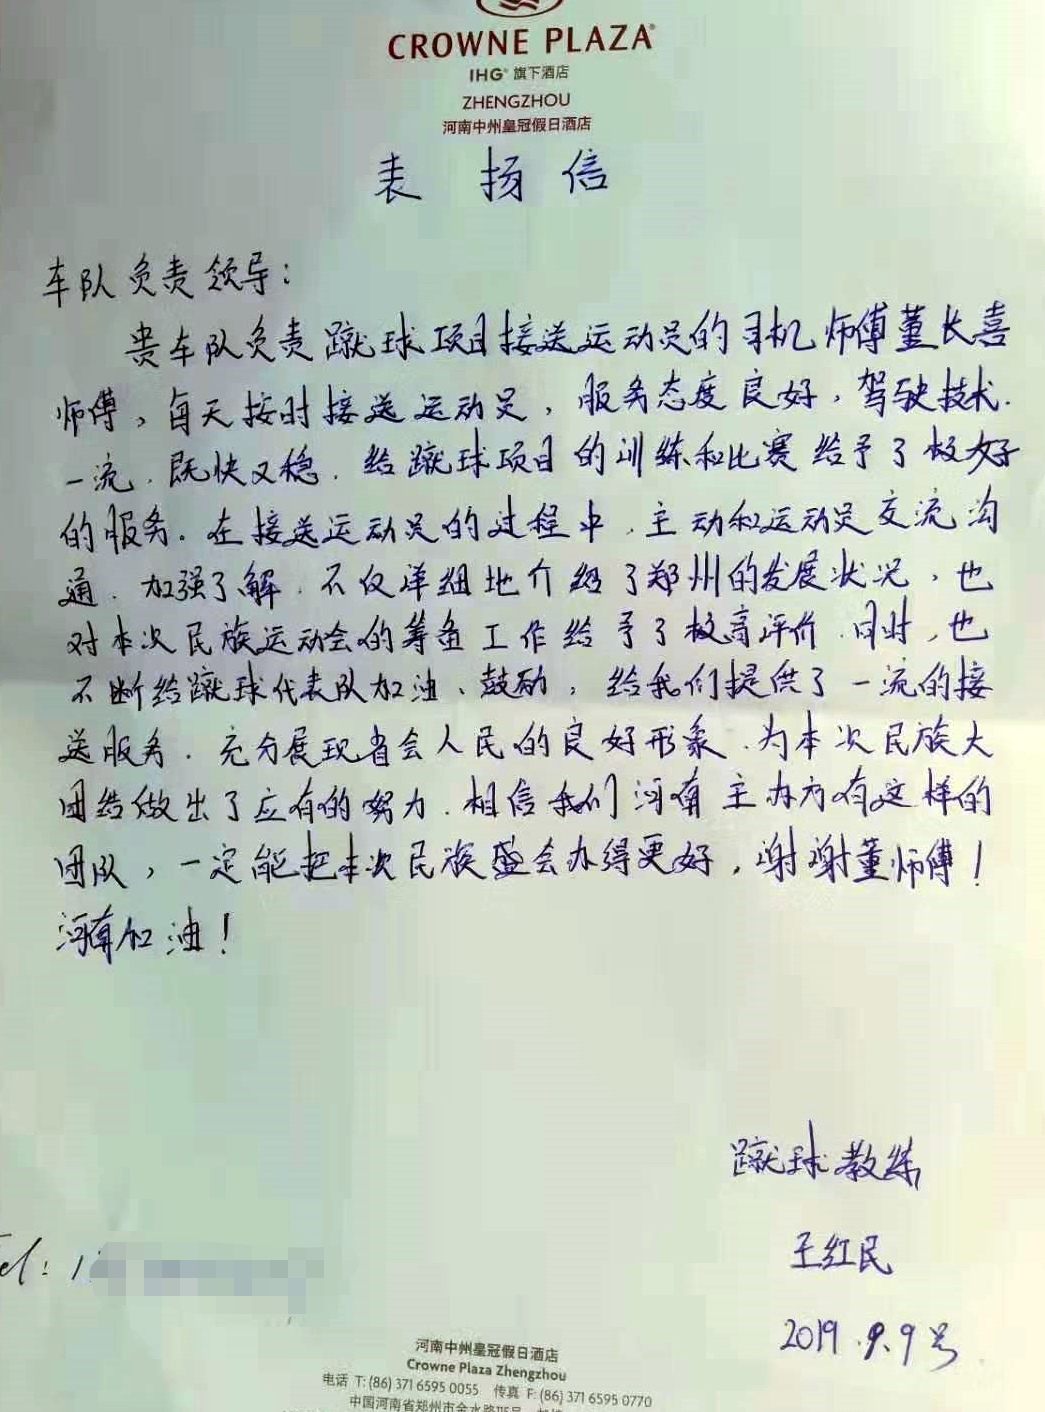 CROWNE PLAZA®
IHG® 旗下酒店
ZHENGZHOU
河南中州皇冠假日酒店
表扬信
车队负责领导：
贵车队负责蹴球项目接送运动员的司机师傅董长喜
师傅，每天按时接送运动员，服务态度良好，驾驶技术
一流，既快又稳，给蹴球项目的训练和比赛给予了极好
的服务。在接送运动员的过程中，主动和运动员交流沟
通，加强了解，不仅详细地介绍了郑州的发展状况，也
对本次民族运动会的筹备工作给予了极高评价，同时，也
不断给蹴球代表队加油、鼓励，给我们提供了一流的接
送服务，充分展现省会人民的良好形象，为本次民族大
团结做出了应有的努力，相信我们河南主办方有这样的
团队，一定能把本次民族盛会办得更好，谢谢董师傅！
河南加油！
蹴球教练
王红民
2019.9.9号
el: 1
河南中州皇冠假日酒店
Crowne Plaza Zhengzhou
电话 T: (86) 371 6595 0055 传真 F: (86) 371 6595 0770
中国河南省郑州市金水路115号